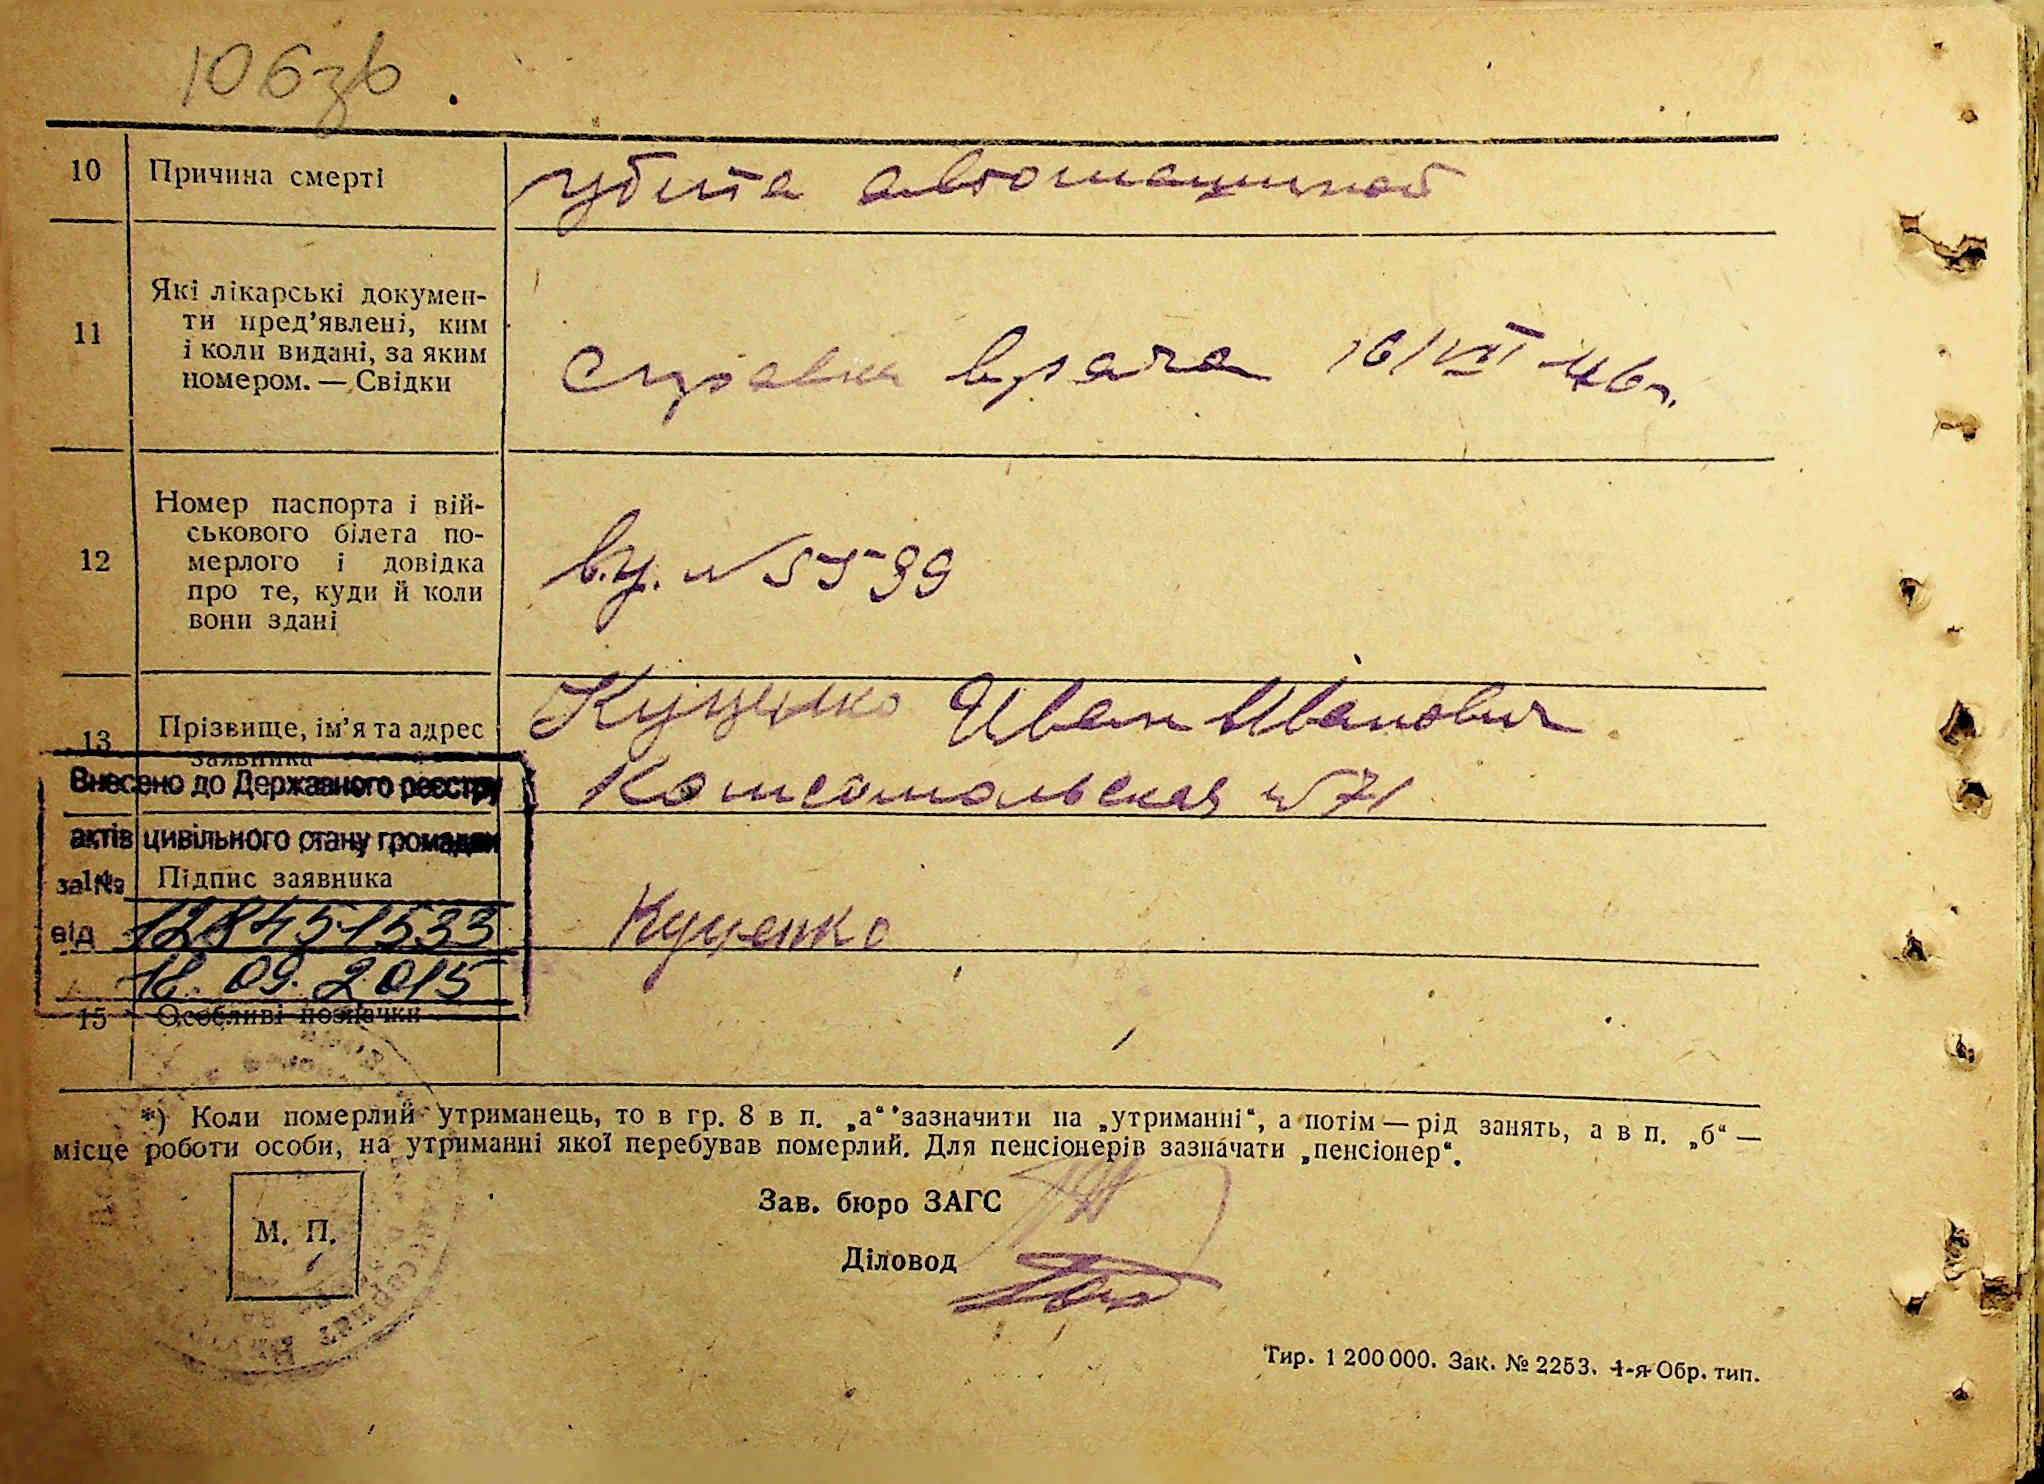 106зв
10 Причина смерті убита автомашиной
11 Які лікарські докумен-
ти пред’явлені, ким
і коли видані, за яким
номером. — Свідки
справка врача 16/VII-46г.
12 Номер паспорта і вій-
ськового білета по-
мерлого і довідка
про те, куди й коли
вони здані
в.у. №5599
13 Прізвище, ім’я та адрес
заявника
Куценко Иван Иванович
Комсомольская №71
Внесено до Державного реєстру
актів цивільного стану громадян
за №
14 Підпис заявника
Куценко
від 12845-1533
18.09.2015
15 Особливі позначки
*) Коли померлий утриманець, то в гр. 8 в п. „а“ зазначити на „утриманні“, а потім — рід занять, а в п. „б“ —
місце роботи особи, на утриманні якої перебував померлий. Для пенсіонерів зазначати „пенсіонер“.
М. П.
Зав. бюро ЗАГС
Діловод
Тир. 1 200 000. Зак. № 2253. 1-я Обр. тип.